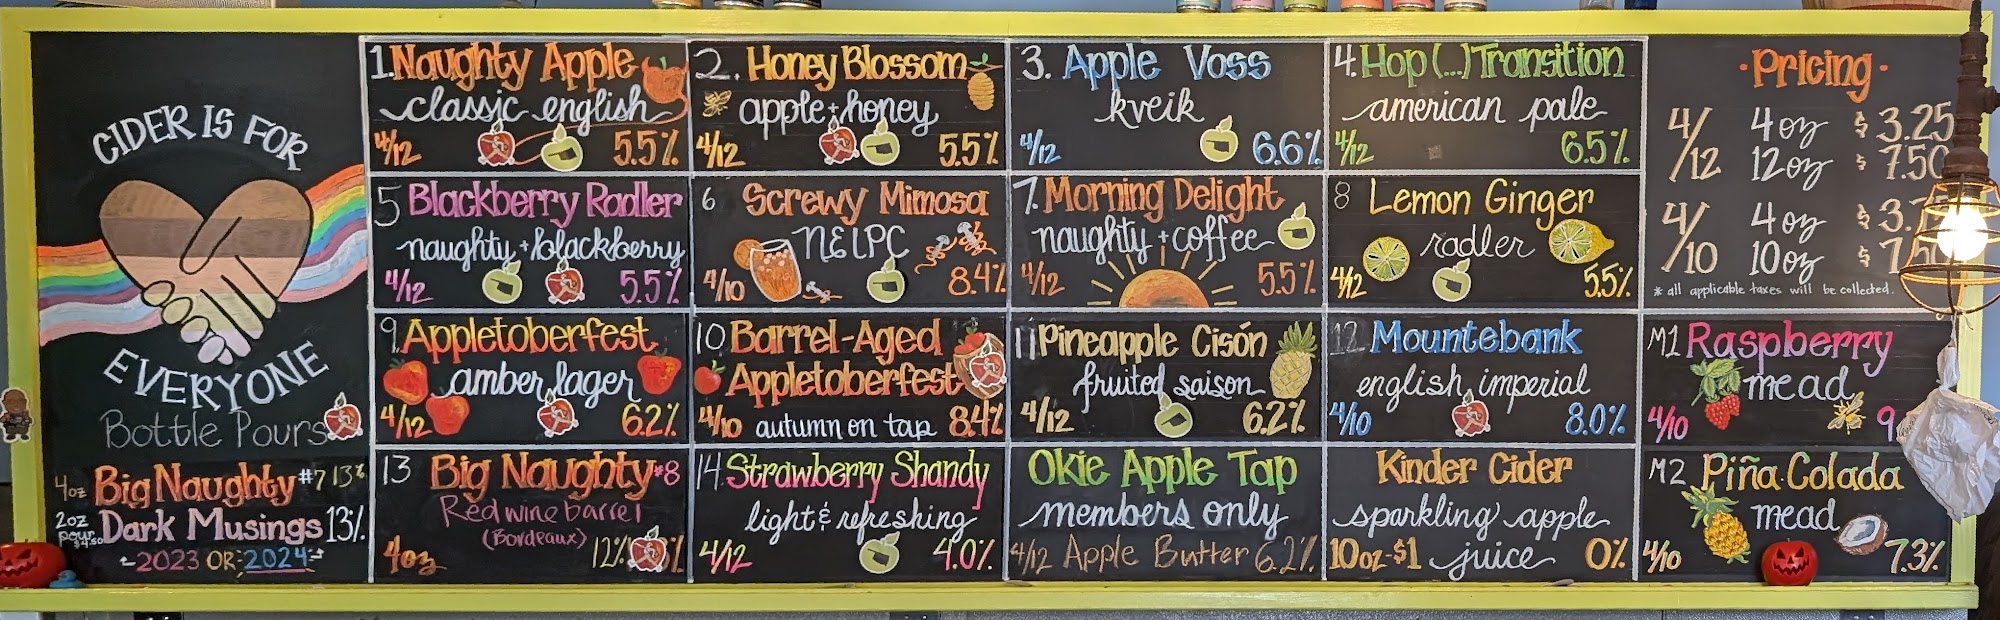 CIDER IS FOR
EVERYONE
Bottle Pours
4oz Big Naughty #7 13%
2oz pour $4.50 Dark Musings 13%
2023 OR 2024
1. Naughty Apple
classic english
4/12 5.5%
2. Honey Blossom
apple + honey
4/12 5.5%
3. Apple Voss
kveik
4/12 6.6%
4. Hop (...) Transition
american pale
4/12 6.5%
5 Blackberry Radler
naughty + blackberry
4/12 5.5%
6 Screwy Mimosa
NEIPC
4/10 8.4%
7. Morning Delight
naughty + coffee
4/12 5.5%
8 Lemon Ginger
radler
4/12 5.5%
9 Appletoberfest
amber lager
4/12 6.2%
10 Barrel-Aged
Appletoberfest
4/10 autumn on tap 8.4%
11 Pineapple Cisón
fruited saison
4/12 6.2%
12 Mountebank
english imperial
4/10 8.0%
13 Big Naughty #8
Red wine barrel
(Bordeaux)
4oz 12%
14 Strawberry Shandy
light & refreshing
4/12 4.0%
Okie Apple Tap
members only
4/12 Apple Butter 6.2%
Kinder Cider
sparkling apple
10oz-$1 juice 0%
·Pricing·
4/12 4oz $3.25
12oz $7.50
4/10 4oz
10oz
* all applicable taxes will be collected.
M1 Raspberry
mead
4/10
M2 Piña Colada
mead
4/10 7.3%